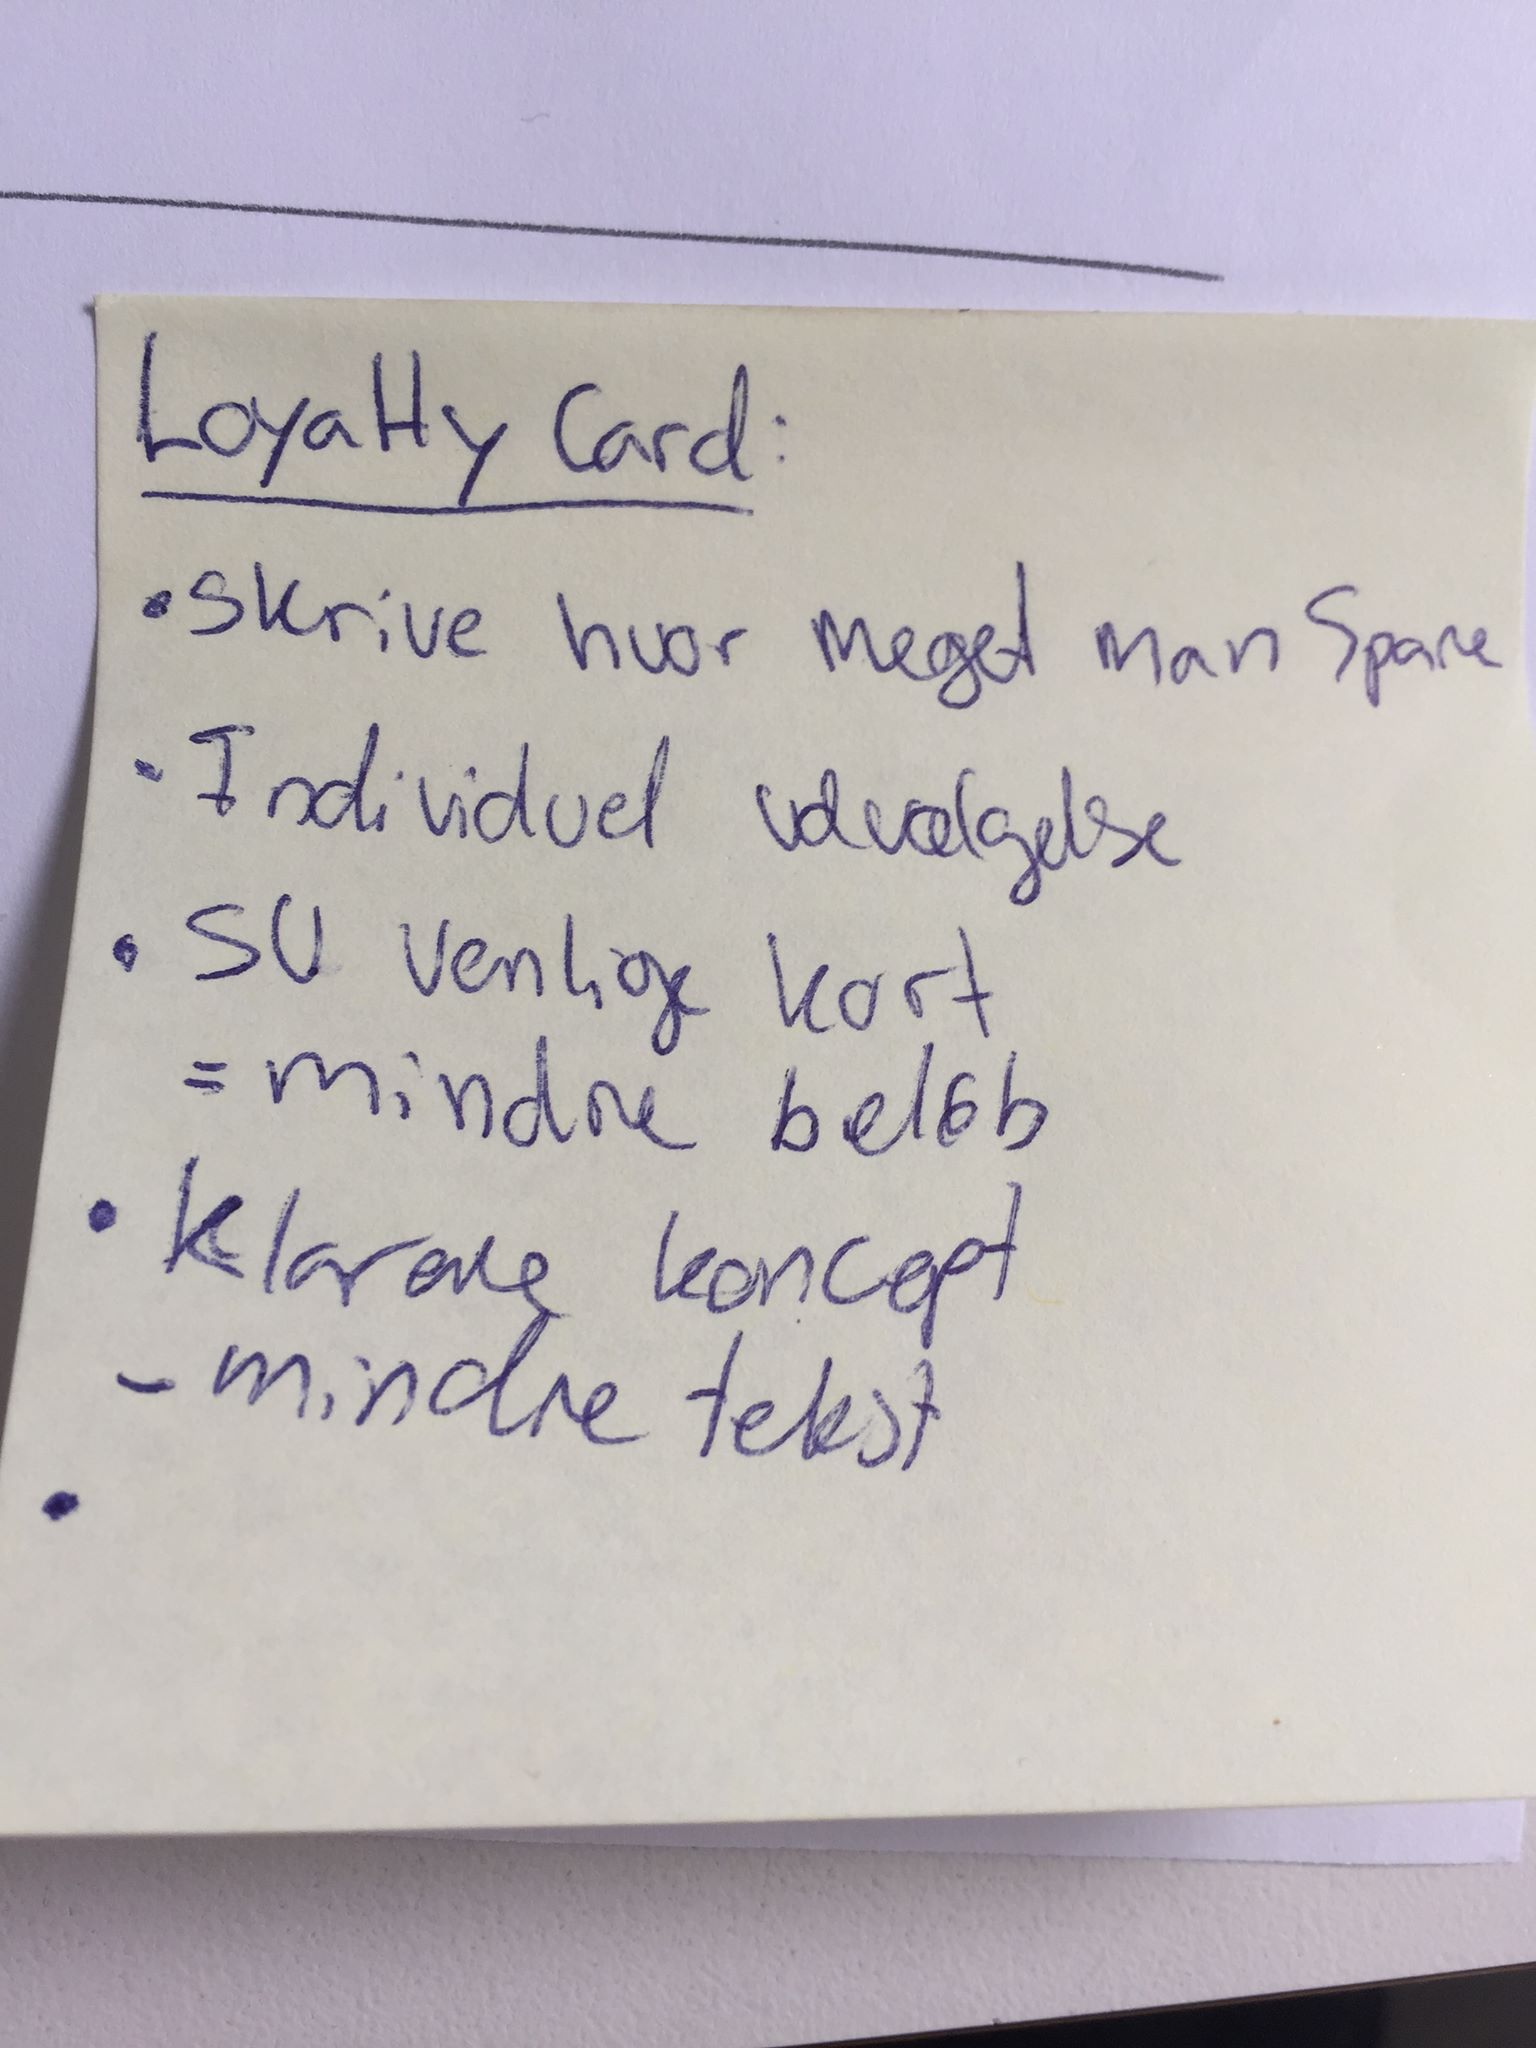 Loyalty Card:
• Skrive hvor meget man Spare
• Individuel udvælgelse
• SU venlige kort
= mindre beløb
• Klarere koncept
- mindre tekst
•